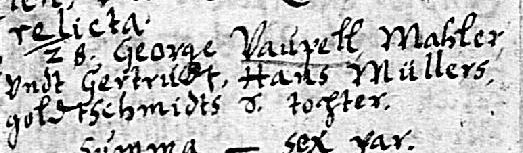 relicta.
28. George Vaupell, Mahler,
Undt Gertrudt, Hans Müllers,
goldtschmidts s. tochter.
Summa — sex par.